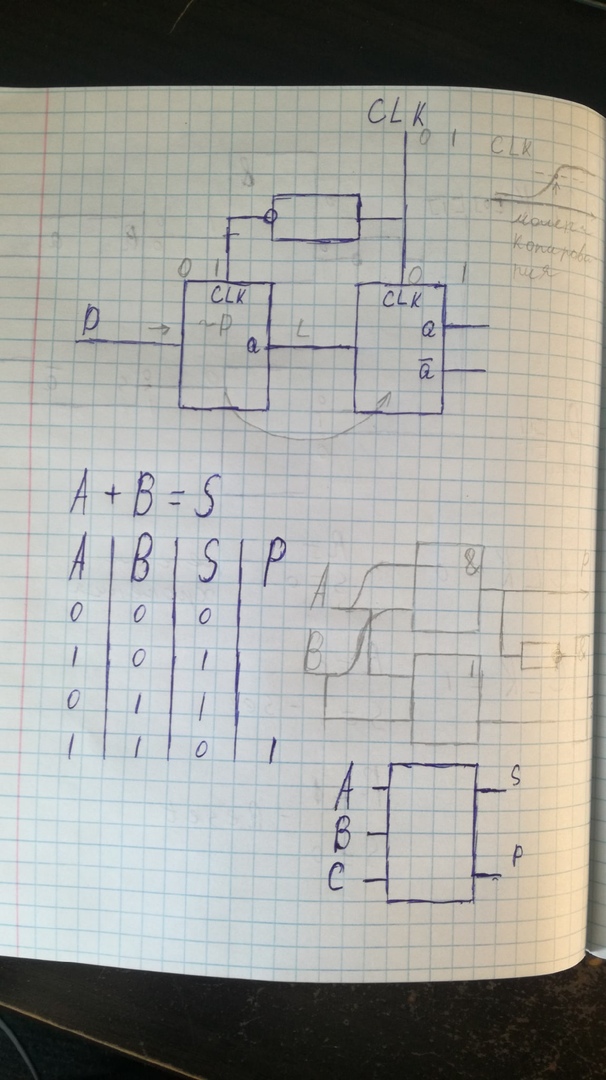 CLK
0 1
CLK
момент
копирова
ния
0 1
0 1
CLK
CLK
D
~D
a
L
a
a̅
A + B = S
A B S P
0 0 0
1 0 1
0 1 1
1 1 0 1
A
B
&
1
P
A
B
C
S
P